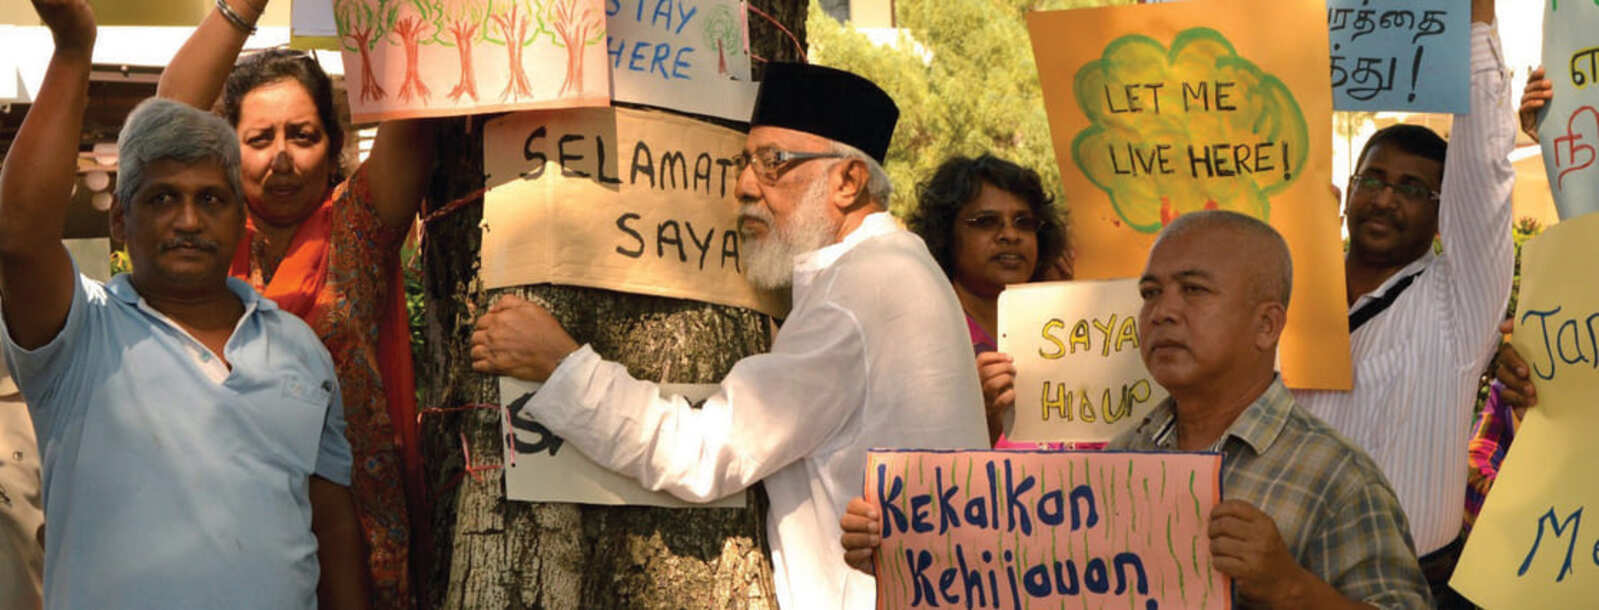 STAY
HERE
SELAMAT
SAYA
LET ME
LIVE HERE!
ரத்தை
த்து!
எ
நி
SAYA
HIDUP
KEKalKan
Kehijauan
Jan
Me
S